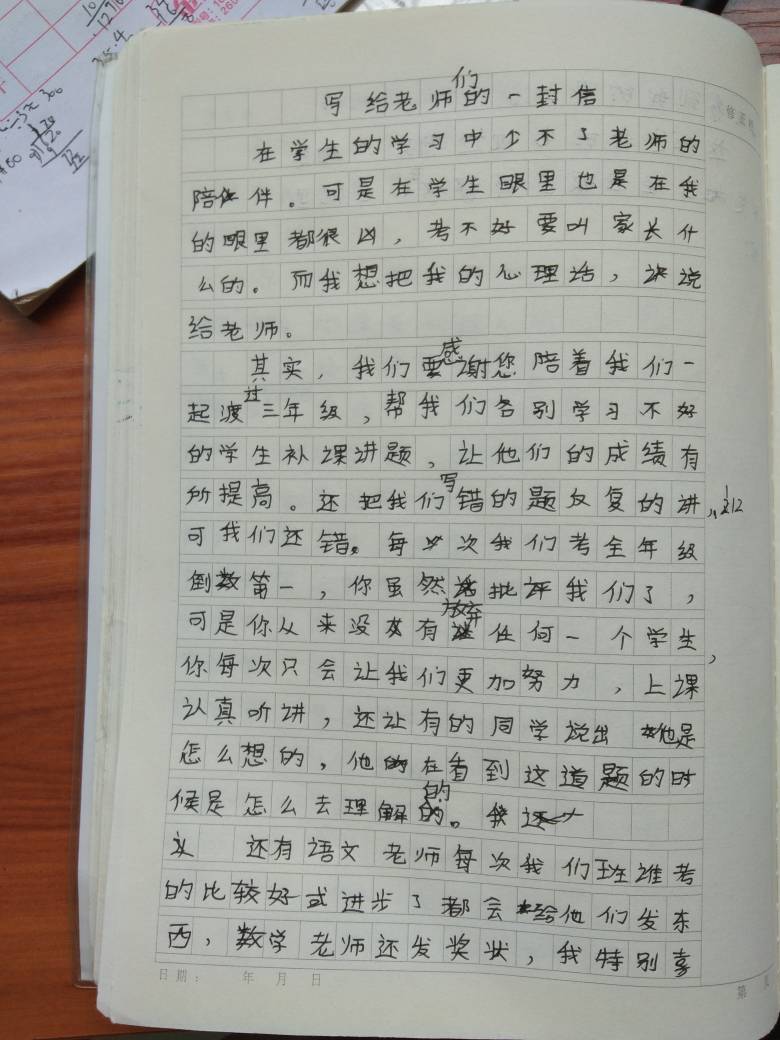 写给老师们的一封信
在学生的学习中少不了老师的
陪伴。可是在学生眼里也是在我
的眼里都很凶，考不好要叫家长什
么的。而我想把我的心理话，说
给老师。
其实，我们要感谢您陪着我们一
起渡过三年级，帮我们各别学习不好
的学生补课讲题，让他们的成绩有
所提高。还把我们写错的题反复的讲，
可我们还错。每次我们考全年级
倒数笛一，你虽然批评我们了，
可是你从来没有放弃任何一个学生，
你每次只会让我们更加努力，上课
认真听讲，还让有的同学说出他是
怎么想的，他在看到这道题的时
候是怎么去理解的。
还有语文老师每次我们班谁考
的比较好或进步了都会给他们发东
西，数学老师还发奖状，我特别喜
日期： 年 月 日
第 页